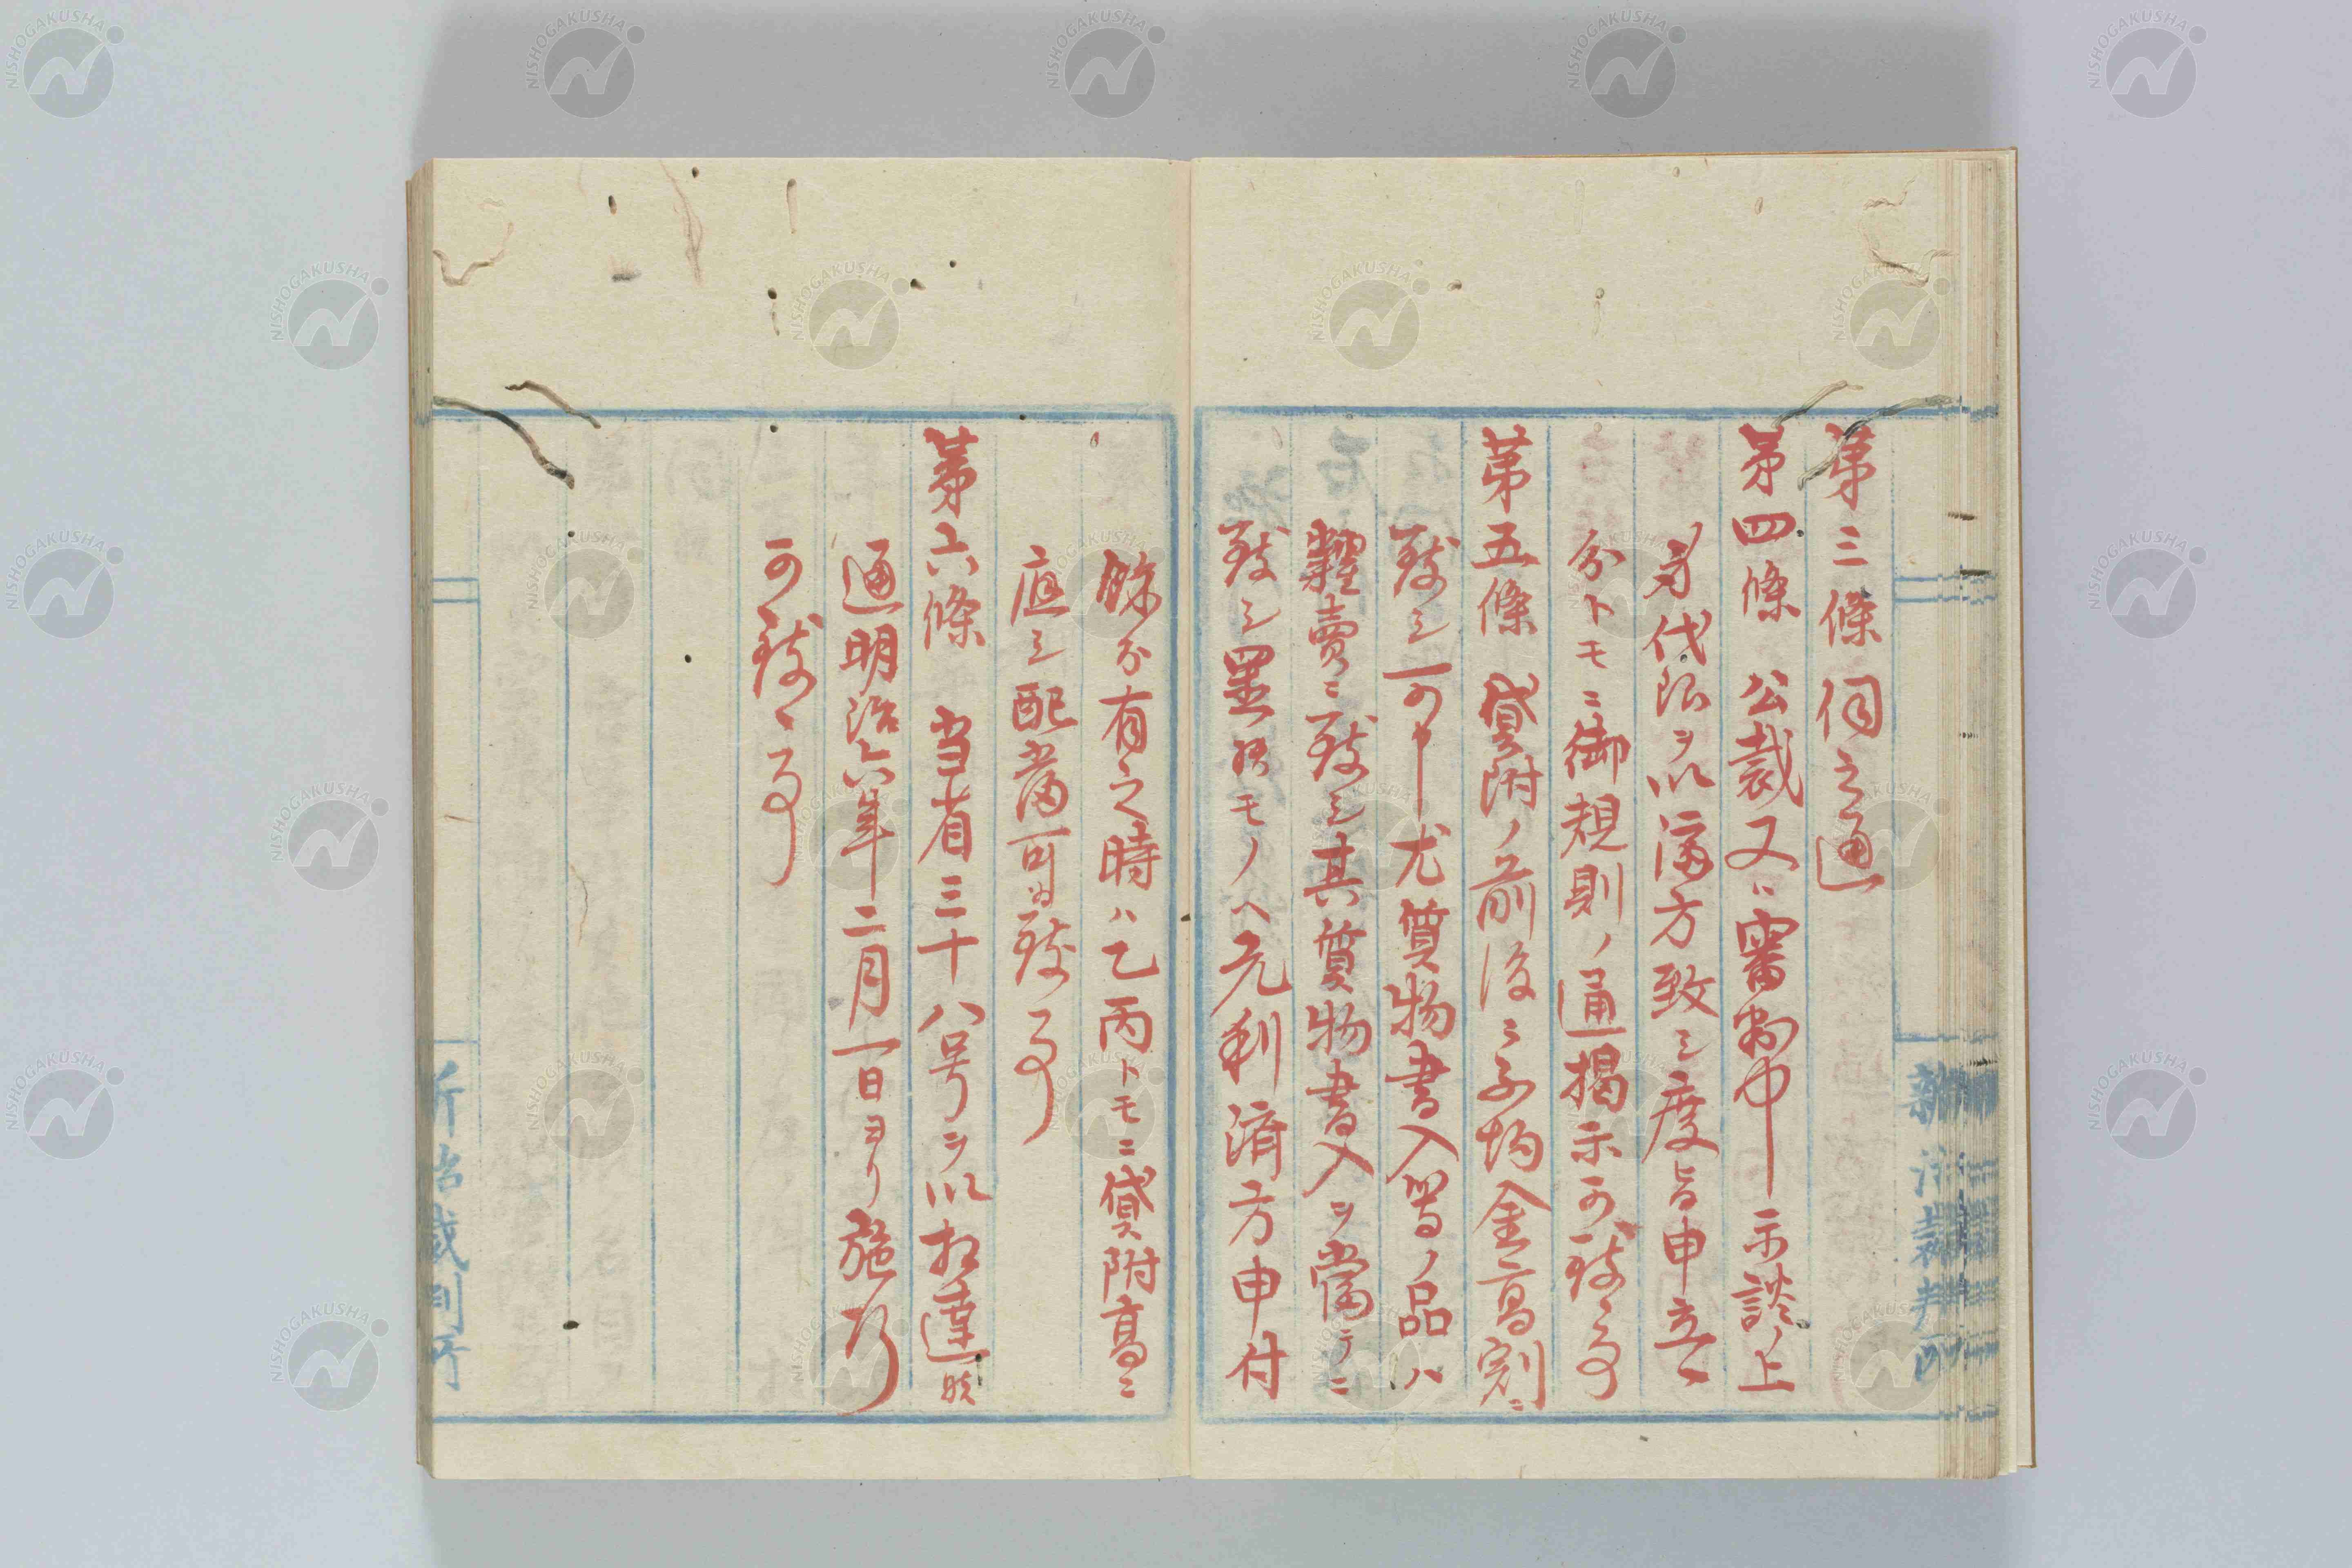 第三條伺之通
第四條 公裁又ハ審判中示談ノ上
身代限ヲ以済方致シ度旨申立
分トモニ御規則ノ通掲示可致事
第五條 貸附ノ前後ニ不均金高割ニ
致シ可申尤質物書入等ノ品ハ
糶賣ニ致シ其質物書入ヲ當テニ
致シ置候モノヘ元利済方申付
餘分有之時ハ乙丙トモニ貸附高ニ
應シ配當可為致事
第六條 当省三十八号ヲ以相達候
通明治六年二月一日ヨリ施行
可致事
新治裁判所
新治裁判所
NISHOGAKUSHA